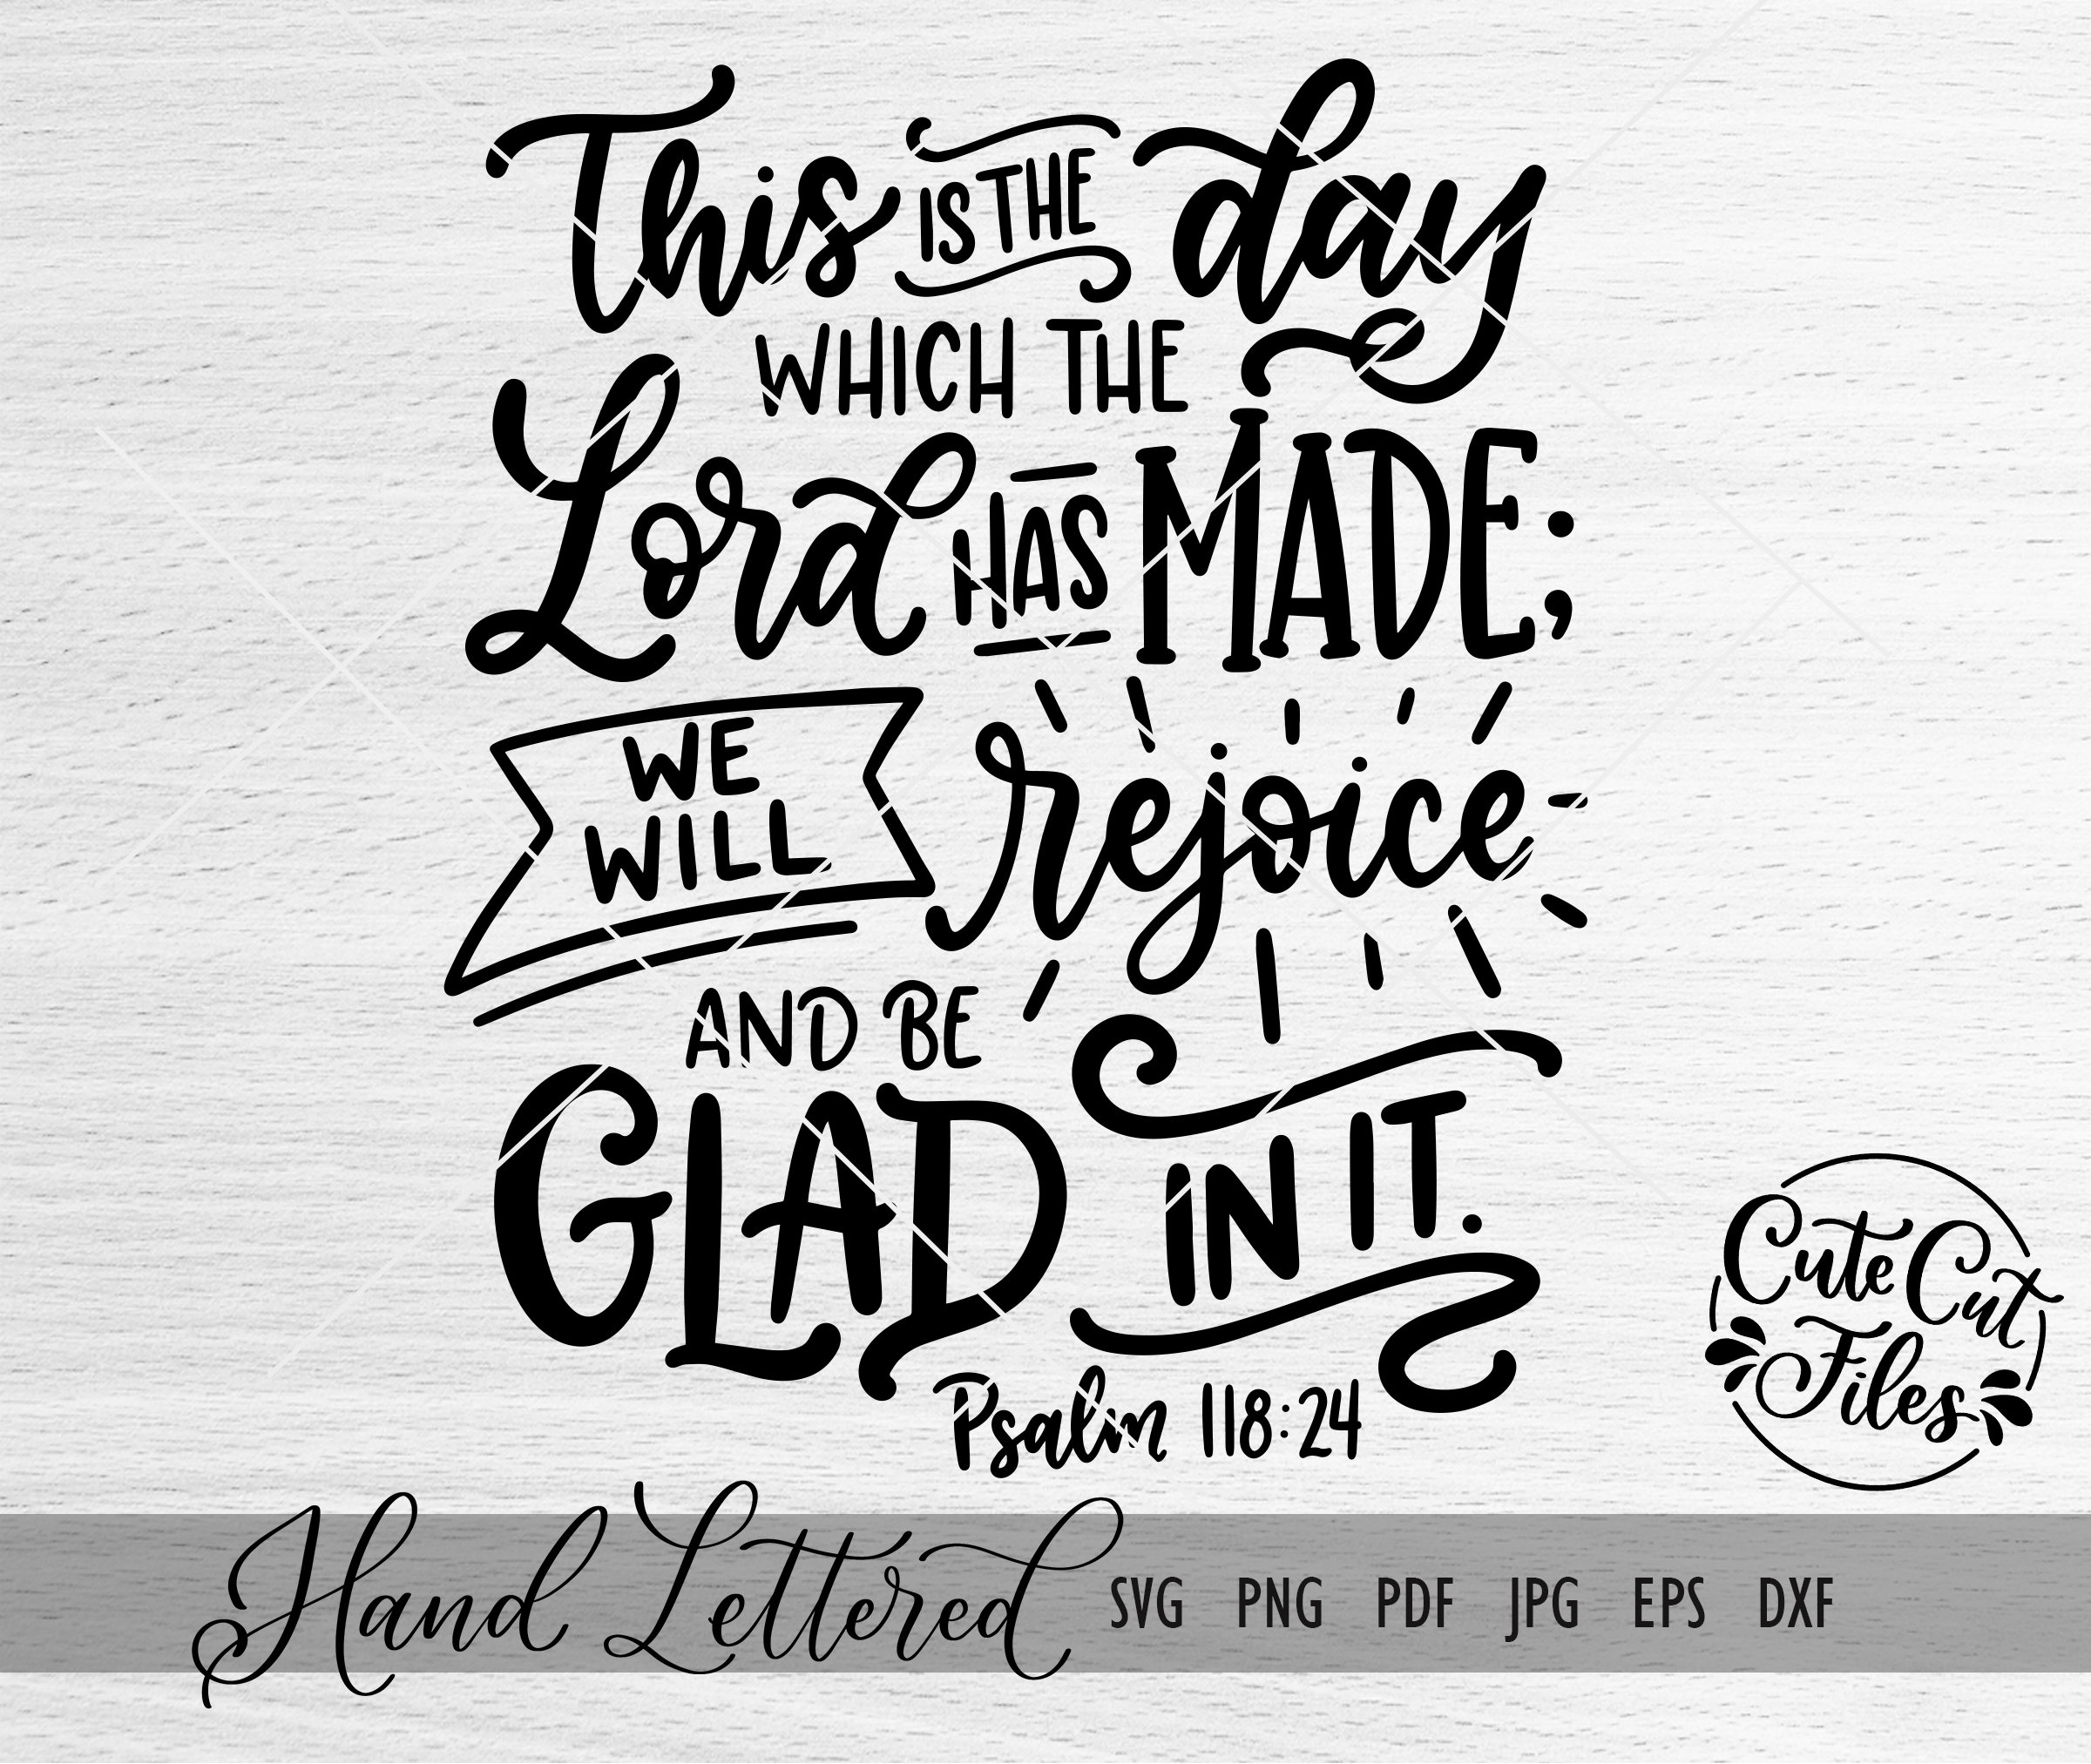 This IS THE day
WHICH THE
Lord HAS MADE;
WE
WILL
rejoice
AND BE
GLAD IN IT.
Psalm 118:24
Cute Cut
Files
Hand Lettered SVG PNG PDF JPG EPS DXF